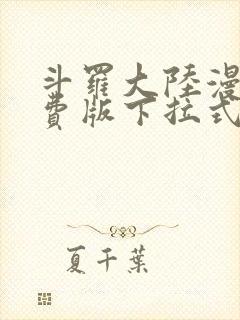 斗羅大陸漫
費版下拉式
夏千葉